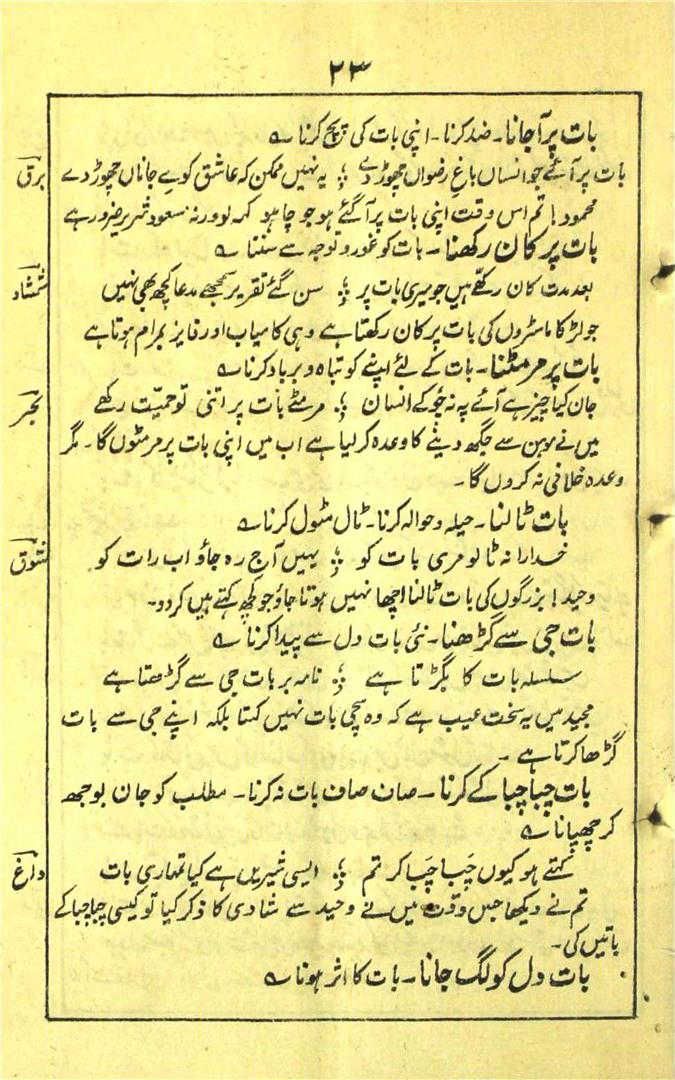 ۲۳
بات پر آجانا۔ ضد کرنا۔ اپنی بات کی پچ کرنا ؎
برق
بات پر آئے جو انساں باغِ رضواں چھوڑ دے ؛ یہ نہیں ممکن کہ عاشق کوے جاناں چھوڑ دے
محمود! تم اس وقت اپنی بات پر آگئے ہو جو چاہو کہہ لو ورنہ مسعود شریر ضرور ہے
بات پر کان رکھنا۔ بات کو غور و توجہ سے سننا ؎
شمشاد
بعد مدت کان رکھے ہیں جو میری بات پر ؛ سن گئے تقریر سمجھے مدعا کچھ بھی نہیں
جو لڑکا ماسٹروں کی بات پر کان رکھتا ہے وہی کامیاب اور فایز بمرام ہوتا ہے
بات پر مر مٹنا۔ بات کے لئے اپنے کو تباہ و برباد کرنا ؎
بحر
جان کیا چیز ہے آئے پہ نہ چُوکے انسان ؛ مر مٹے بات پر اتنی تو حمیّت رکھے
میں نے موہن سے جگھ دینے کا وعدہ کر لیا ہے اب میں اپنی بات پر مر مٹوں گا۔ مگر
وعدہ خلافی نہ کروں گا۔
بات ٹالنا۔ حیلہ و حوالہ کرنا۔ ٹال مٹول کرنا ؎
شوق
خدارا نہ ٹالو مری بات کو ؛ یہیں آج رہ جاؤ اب رات کو
وحید! بزرگوں کی بات ٹالنا اچھا نہیں ہوتا جاؤ جو کچھ کہتے ہیں کر دو۔
بات جی سے گڑھنا۔ نئی بات دل سے پیدا کرنا ؎
سلسلہ بات کا بگڑتا ہے ؛ نامہ بر بات جی سے گڑھتا ہے
مجید میں یہ سخت عیب ہے کہ وہ سچی بات نہیں کہتا بلکہ اپنے جی سے بات
گڑھا کرتا ہے۔
بات چبا چبا کے کرنا۔ صاف صاف بات نہ کرنا۔ مطلب کو جان بوجھ
کر چھپانا ؎
داغ
کہتے ہو کیوں چَبا چَبا کر تم ؛ ایسی شیریں ہے کیا تمہاری بات
تم نے دیکھا جس وقت میں نے وحید سے شادی کا ذکر کیا تو کیسی چبا چبا کے
باتیں کی۔
بات دل کو لگ جانا۔ بات کا اثر ہونا ؎